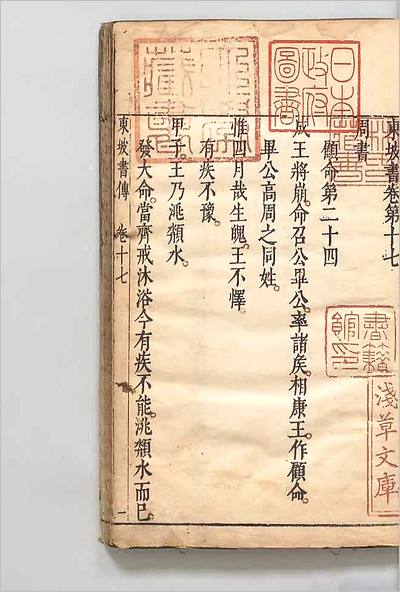 東坡書卷第十七
周書
顧命第二十四
成王將崩。命召公畢公。率諸矦。相康王作顧命。
畢公高周之同姓。
惟四月哉生魄。王不懌。
有疾不豫。
甲子。王乃洮頮水。
發大命。當齊戒沐浴。今有疾不能。洮頮水而已。
東坡書傳 卷十七 一
日本政府圖書
書籍館印
淺草文庫